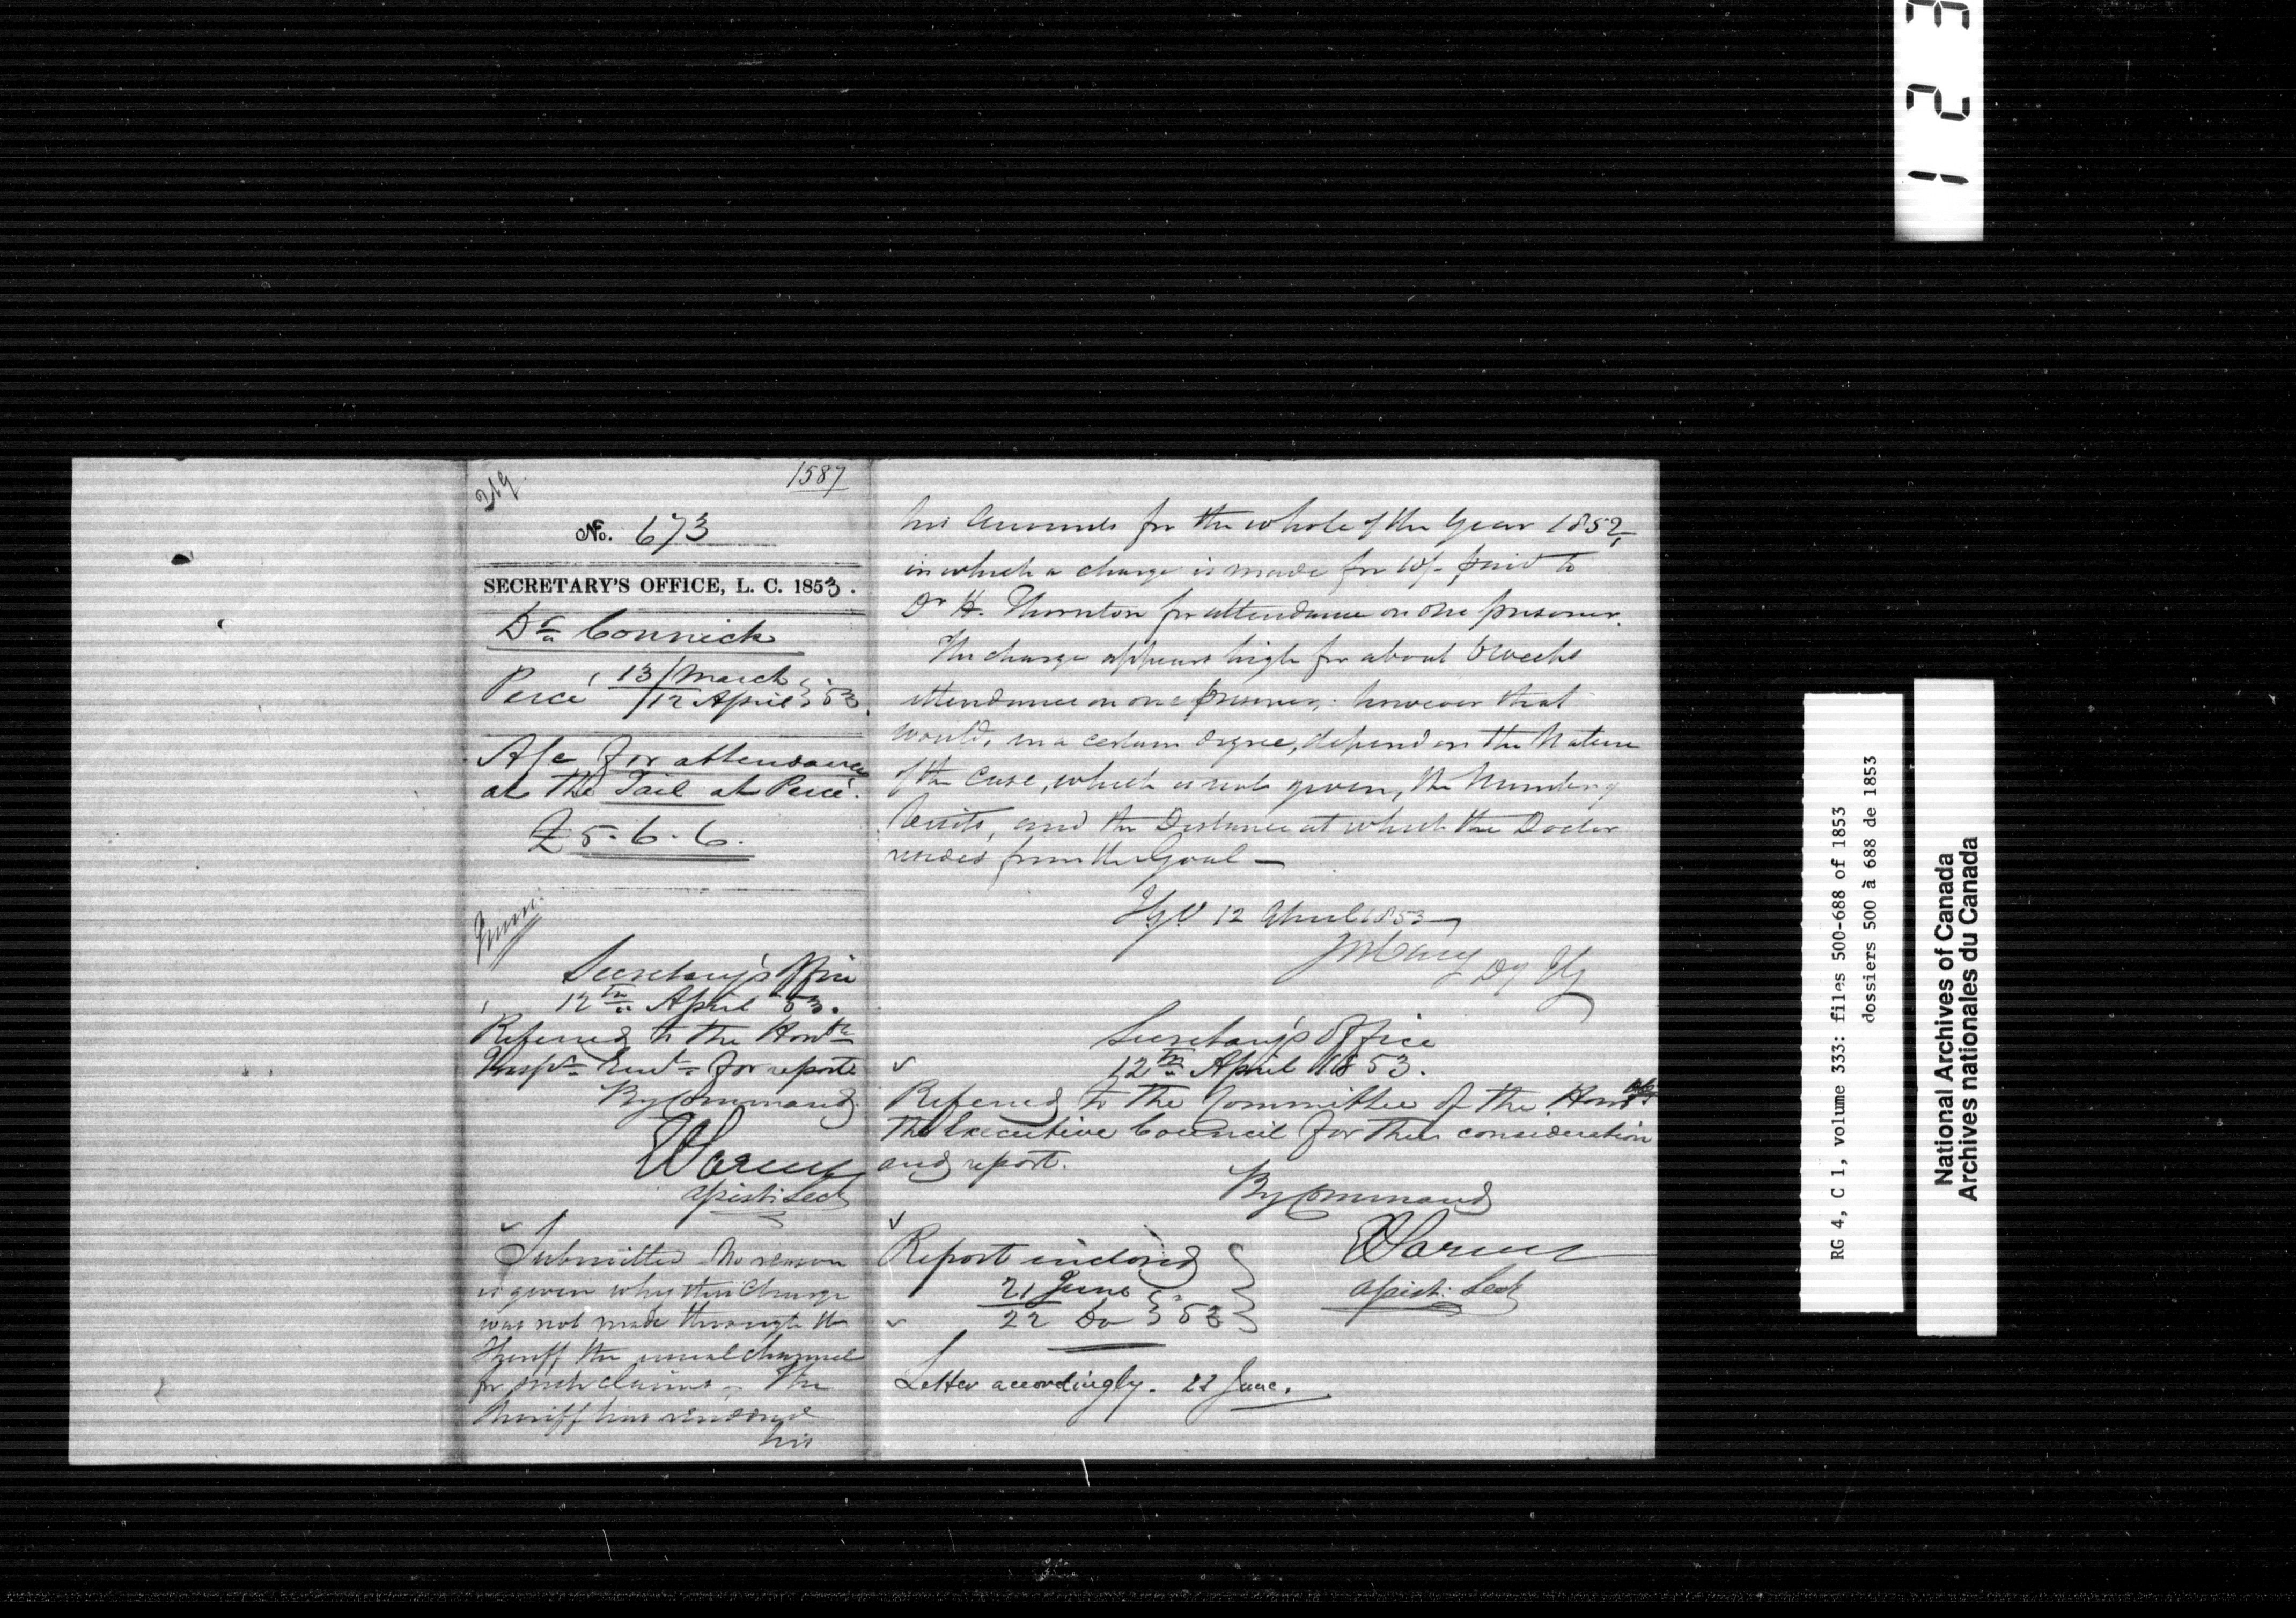 219
1587
No. 673
SECRETARY'S OFFICE, L. C. 1853.
Dr Connick
Percé 13/March
/12 April } 53.
A/c for attendance
at the Jail at Percé.
£5.6.6.
Secretary's Office
12th April 53.
Referred to the Honble
Inspr Genl for report
By Command
Assist: Secy
Submitted. No reason
is given why this charge
was not made through the
Sheriff the usual channel
for such claims - The
Sheriff has rendered
his
his Accounts for the whole of the Year 1852,
in which a charge is made for 10/- paid to
Dr H. Thornton for attendance on one prisoner.
The charge appears high for about 6 weeks
attendance on one prisoner; however that
would, in a certain degree, depend on the Nature
of the Case, which is not given, the Number of
Visits, and the Distance at which the Doctor
resides from the Goal —
I.G.O. 12 April 1853
J Cary Dy IG
Secretary's Office
12th April 1853.
Referred to the Committee of the Honble
the Executive Council for their consideration
and report.
By Command
Assist: Secy
Report inclosed
21 June
22 Do } 53
Letter accordingly. 22 June.
1 2 3
RG 4, C 1, volume 333: files 500-688 of 1853
dossiers 500 à 688 de 1853
National Archives of Canada
Archives nationales du Canada